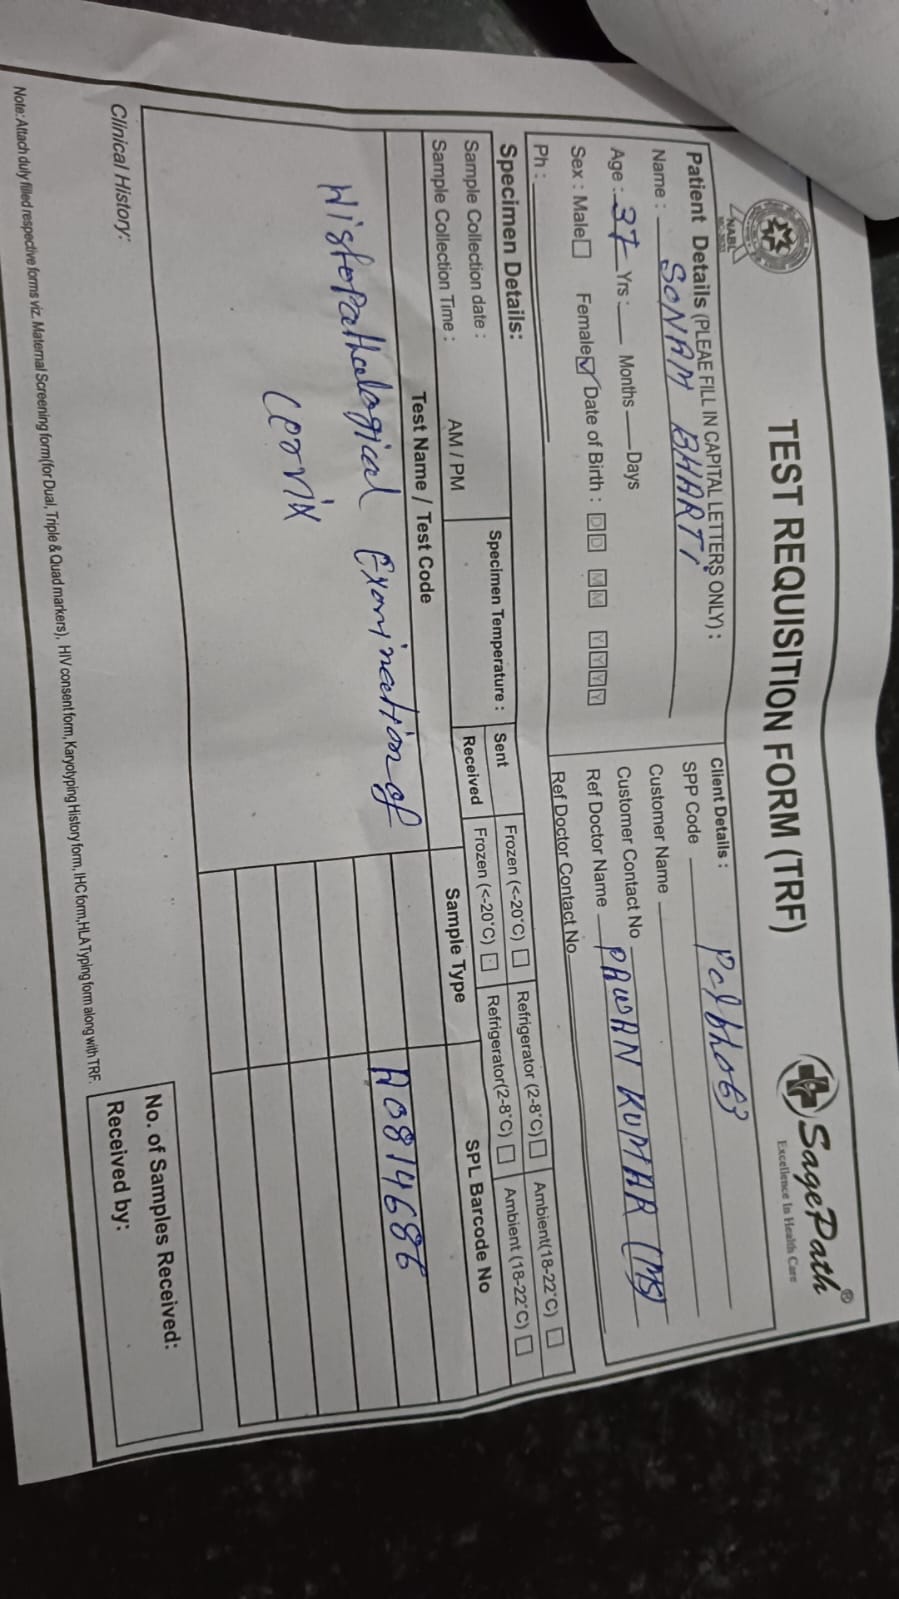 TEST REQUISITION FORM (TRF)
SagePath®
Excellence In Health Care
NABL
Patient Details (PLEAE FILL IN CAPITAL LETTERS ONLY) :
Name : SONAM BHARTI
Age : 37 Yrs : Months Days
Sex : Male Female Date of Birth : D D M M Y Y Y Y
Ph :
Client Details :
SPP Code
Customer Name
Customer Contact No
Ref Doctor Name PAWAN KUMAR (MS)
Ref Doctor Contact No
Specimen Details:
Sample Collection date :
Sample Collection Time : AM / PM
Specimen Temperature :
Sent Frozen (<-20°C) Refrigerator (2-8°C) Ambient(18-22°C)
Received Frozen (<-20°C) Refrigerator(2-8°C) Ambient (18-22°C)
Test Name / Test Code Sample Type SPL Barcode No
Histopathological Examination of
Cervix
A0814686
Clinical History:
No. of Samples Received:
Received by:
Note:Attach duly filled respective forms viz. Maternal Screening form(for Dual, Triple & Quad markers), HIV consent form, Karyotyping History form, IHC form,HLA Typing form along with TRF.